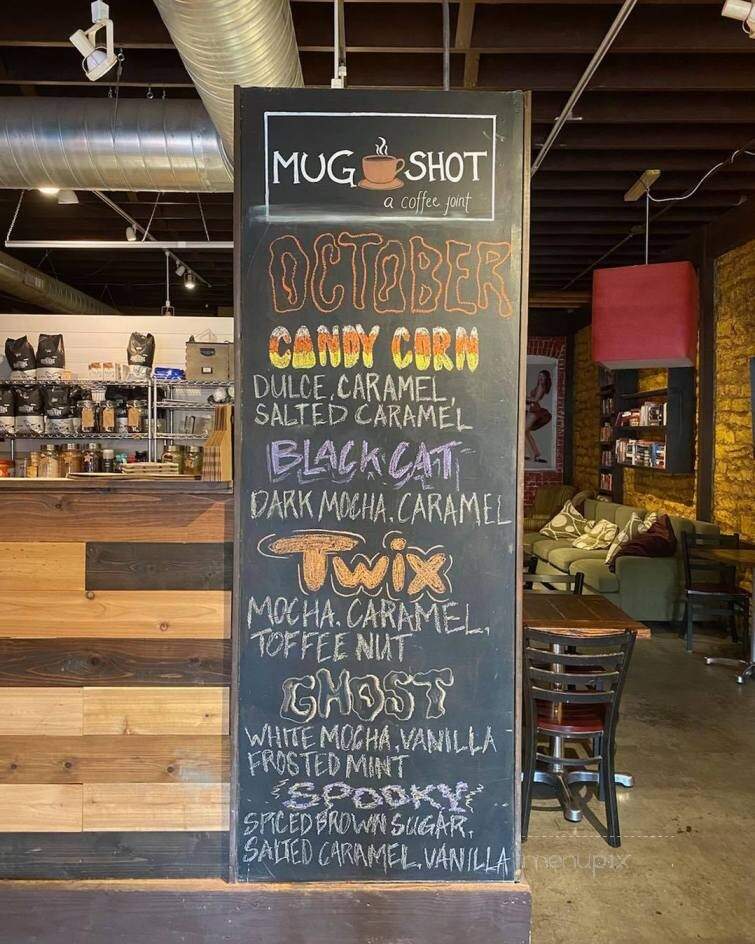 MUG SHOT
a coffee joint
OCTOBER
CANDY CORN
DULCE, CARAMEL,
SALTED CARAMEL
BLACK CAT
DARK MOCHA, CARAMEL
TWIX
MOCHA, CARAMEL,
TOFFEE NUT
GHOST
WHITE MOCHA, VANILLA
FROSTED MINT
SPOOKY
SPICED BROWN SUGAR,
SALTED CARAMEL, VANILLA
menupix